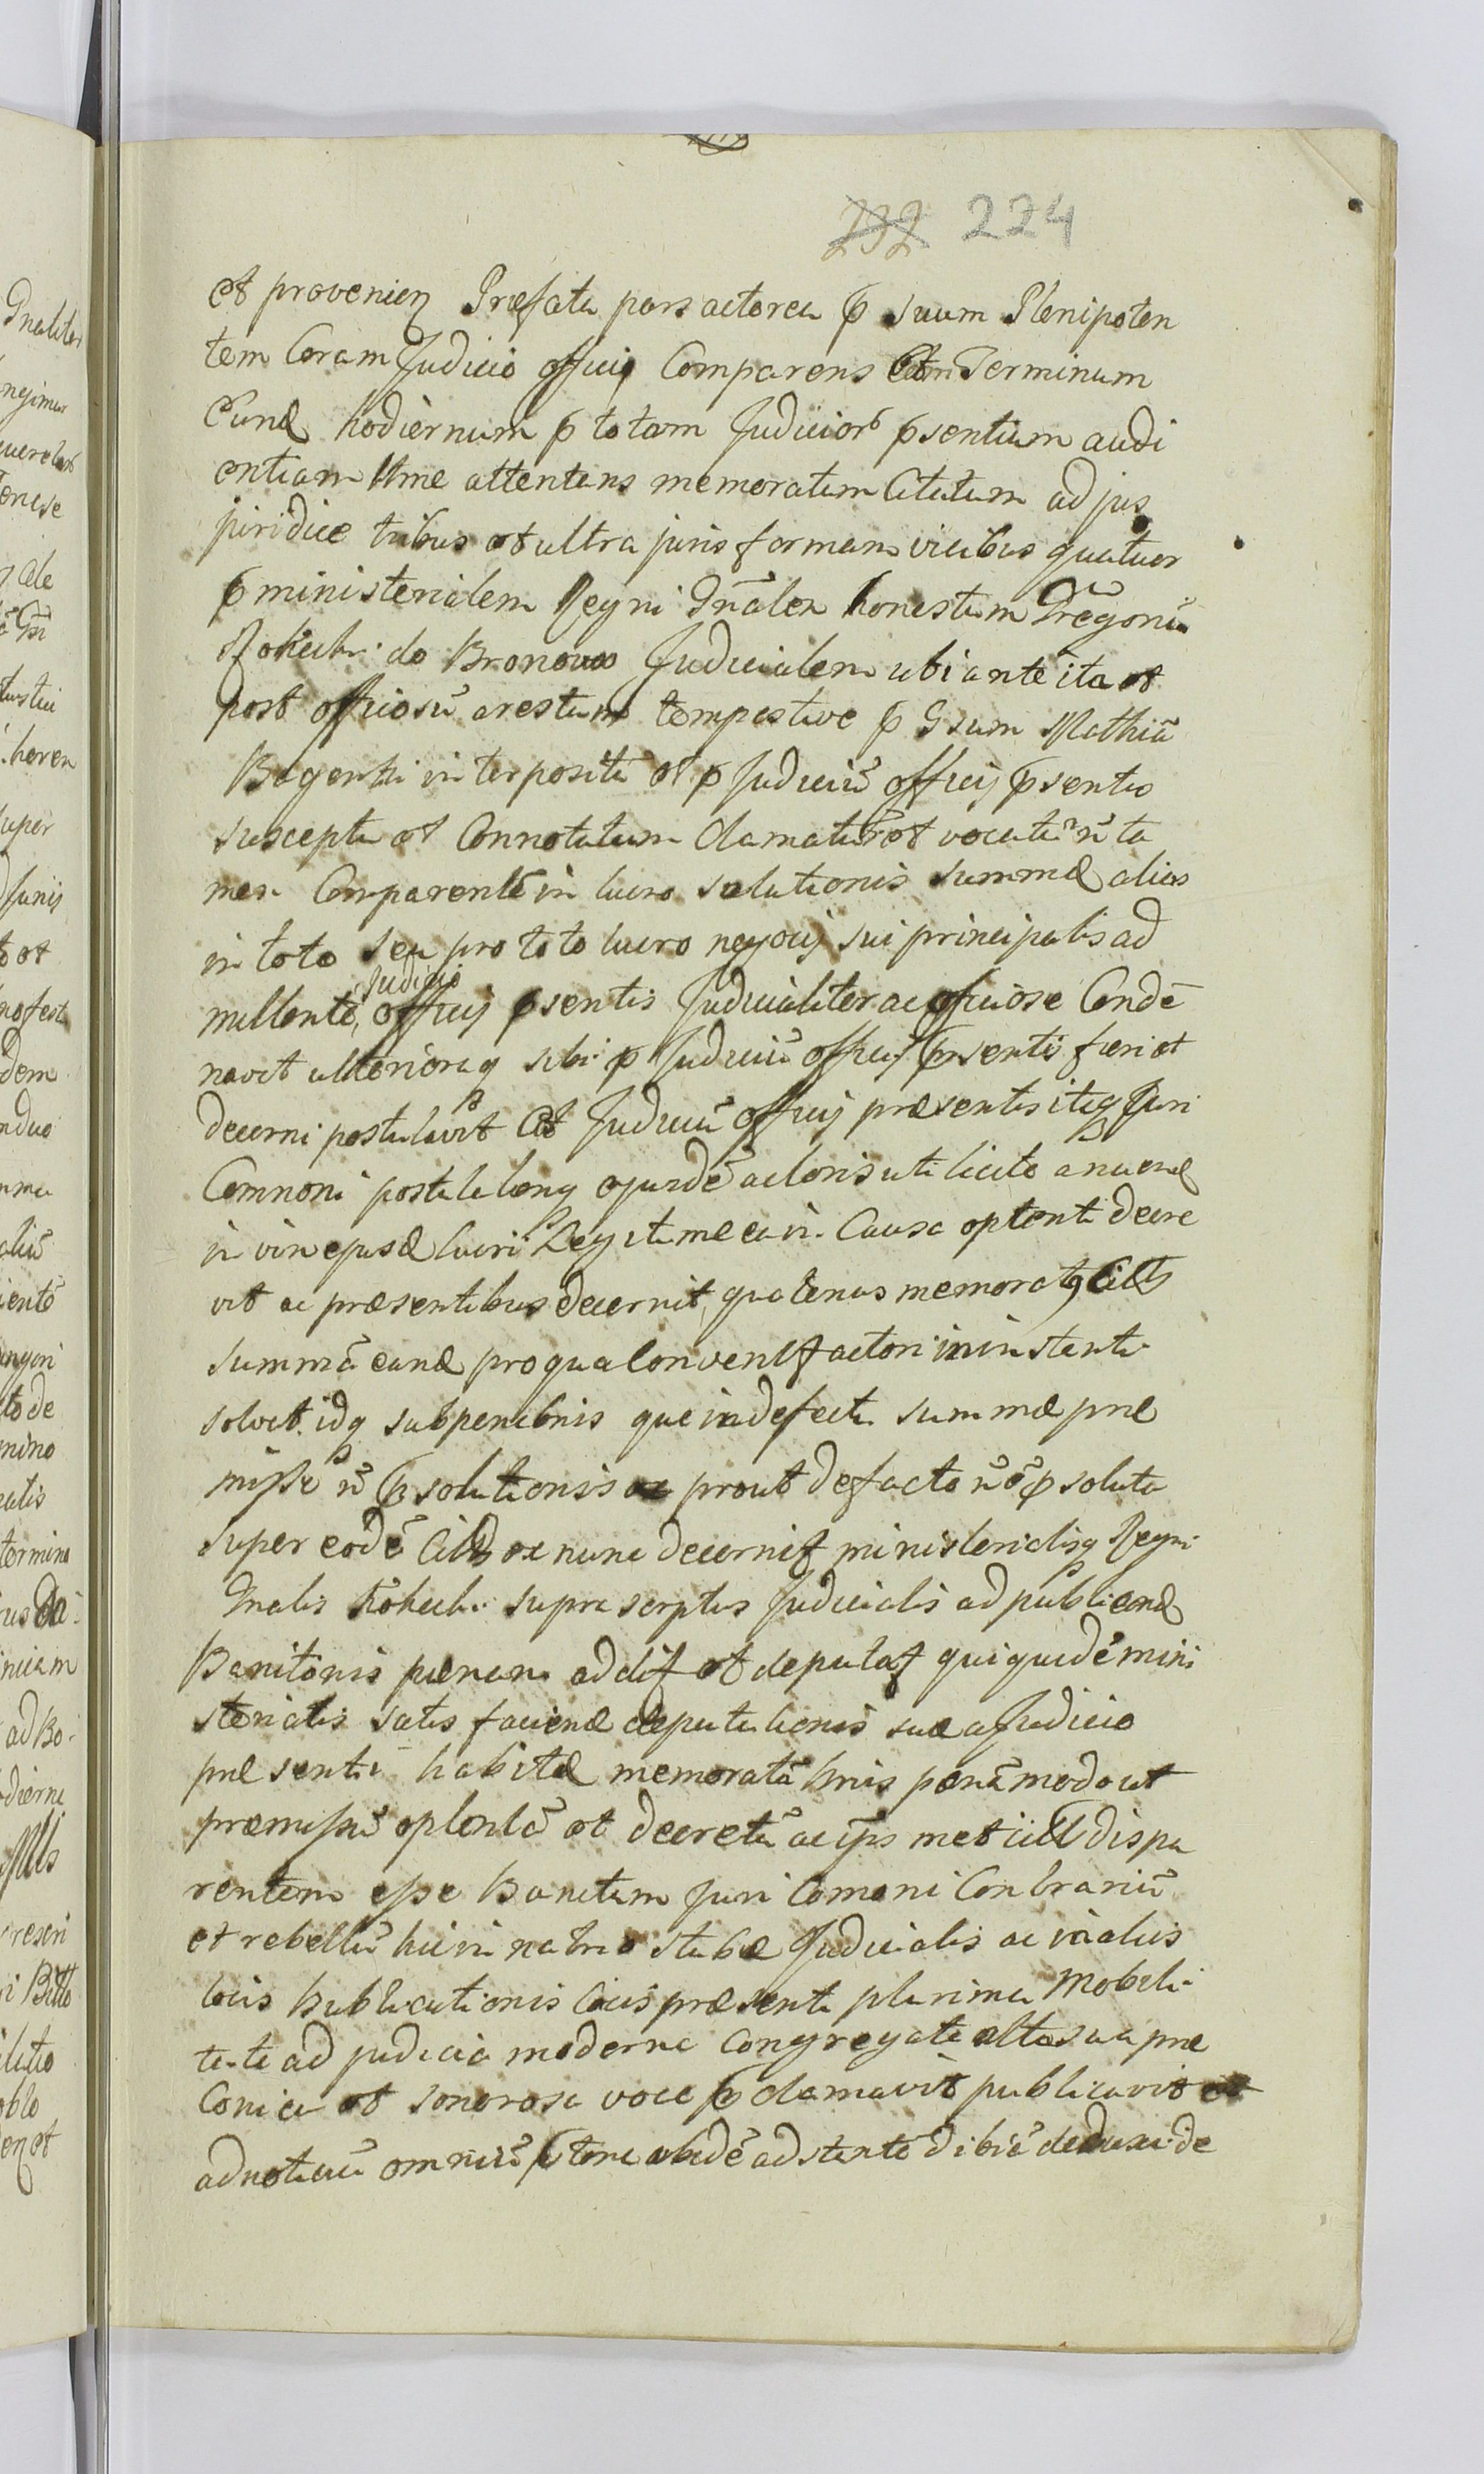 232 224
et provenien Præfata pars actorea p suum Plenipoten
tem Coram Judicio officij Comparens Et in Terminum
Eund hodiernum p totam Judicior psentium audi
entiam ttme attentans memoratum Citatum ad jus
juridice tribus et ultra juris formam vicibus quatuor
p ministerialem Regni Gnãlem honestum Gregoriũ
do Bronowo Judicialem ubi ante ita et
post officiosũ arestum tempestive p Gsum Mathiã
interpositũ et p Judiciũ officij psentis
susceptũ et Connotatum clamatũ et vocatũ nõ ta
men Comparentẽ in lucro solutionis summæ alias
in toto seu pro toto lucro negocij sui principalis ad
mittente Judicio officij psentis Judicialiter ac officiose Condẽ
navit ulteriorq sibi p Judiciũ officij psentis fieri et
decerni postulavit Et Judiciũ officij præsentis itaq Juri
Comnoni postulationq ejusdẽ actoris uti licite annuend
in vim ejusd lucri Legitime ea in Causa optenti decre
vit ac præsentibus decernit, quatenus memoratq Citts
summã eand pro qua Convent actori in instanti
solvat idq sub penabnis que in defectu summæ præ
missæ nõ psolutionis ac prout de facto nõ ẽ psoluta
super eodẽ Citto ex nunc decernit ministerialisq Regni
Gnalis supra scriptus Judicialis ad publicand
Banitionis pœnam addit et deputat qui quidẽ mini
sterialis satis faciend deputationis suæ a Judicio
præsenti habitæ memoratã bnis pœnã modo ut
præmissũ optentã et decretã ac ipsmet Citt dispa
rentem esse Banitum Juri Comoni Contrariũ
et rebellẽ hic in atrio stubæ Judicialis ac in aliis
locis Publicationis Cois præsente plurima Nobili
tate ad judicia moderna Congregata alta sua præ
Conica et sonorosa voce pclamavit publicavit et
ad notitiã omniũ ptunc ibidẽ adstantẽ dibiẽ deduxit de